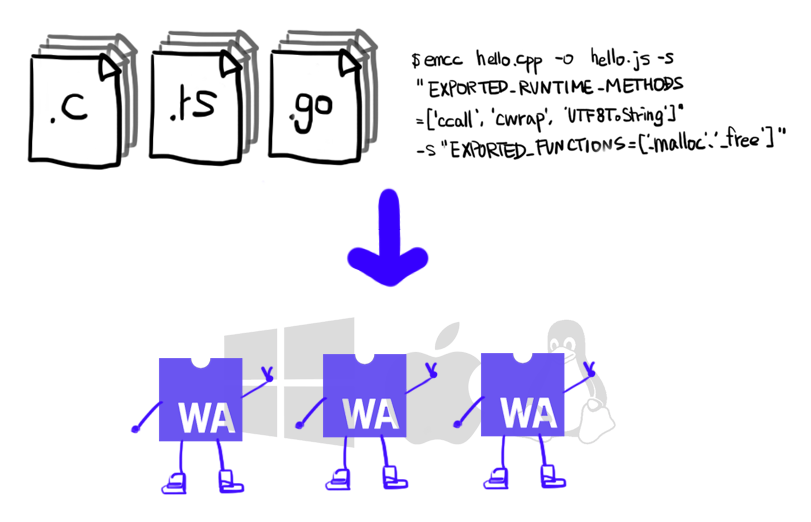 .c
.rs
.go
$ emcc hello.cpp -o hello.js -s
"EXPORTED_RUNTIME_METHODS
=['ccall', 'cwrap', 'UTF8ToString']"
-s "EXPORTED_FUNCTIONS=['_malloc','_free']"
WA
WA
WA